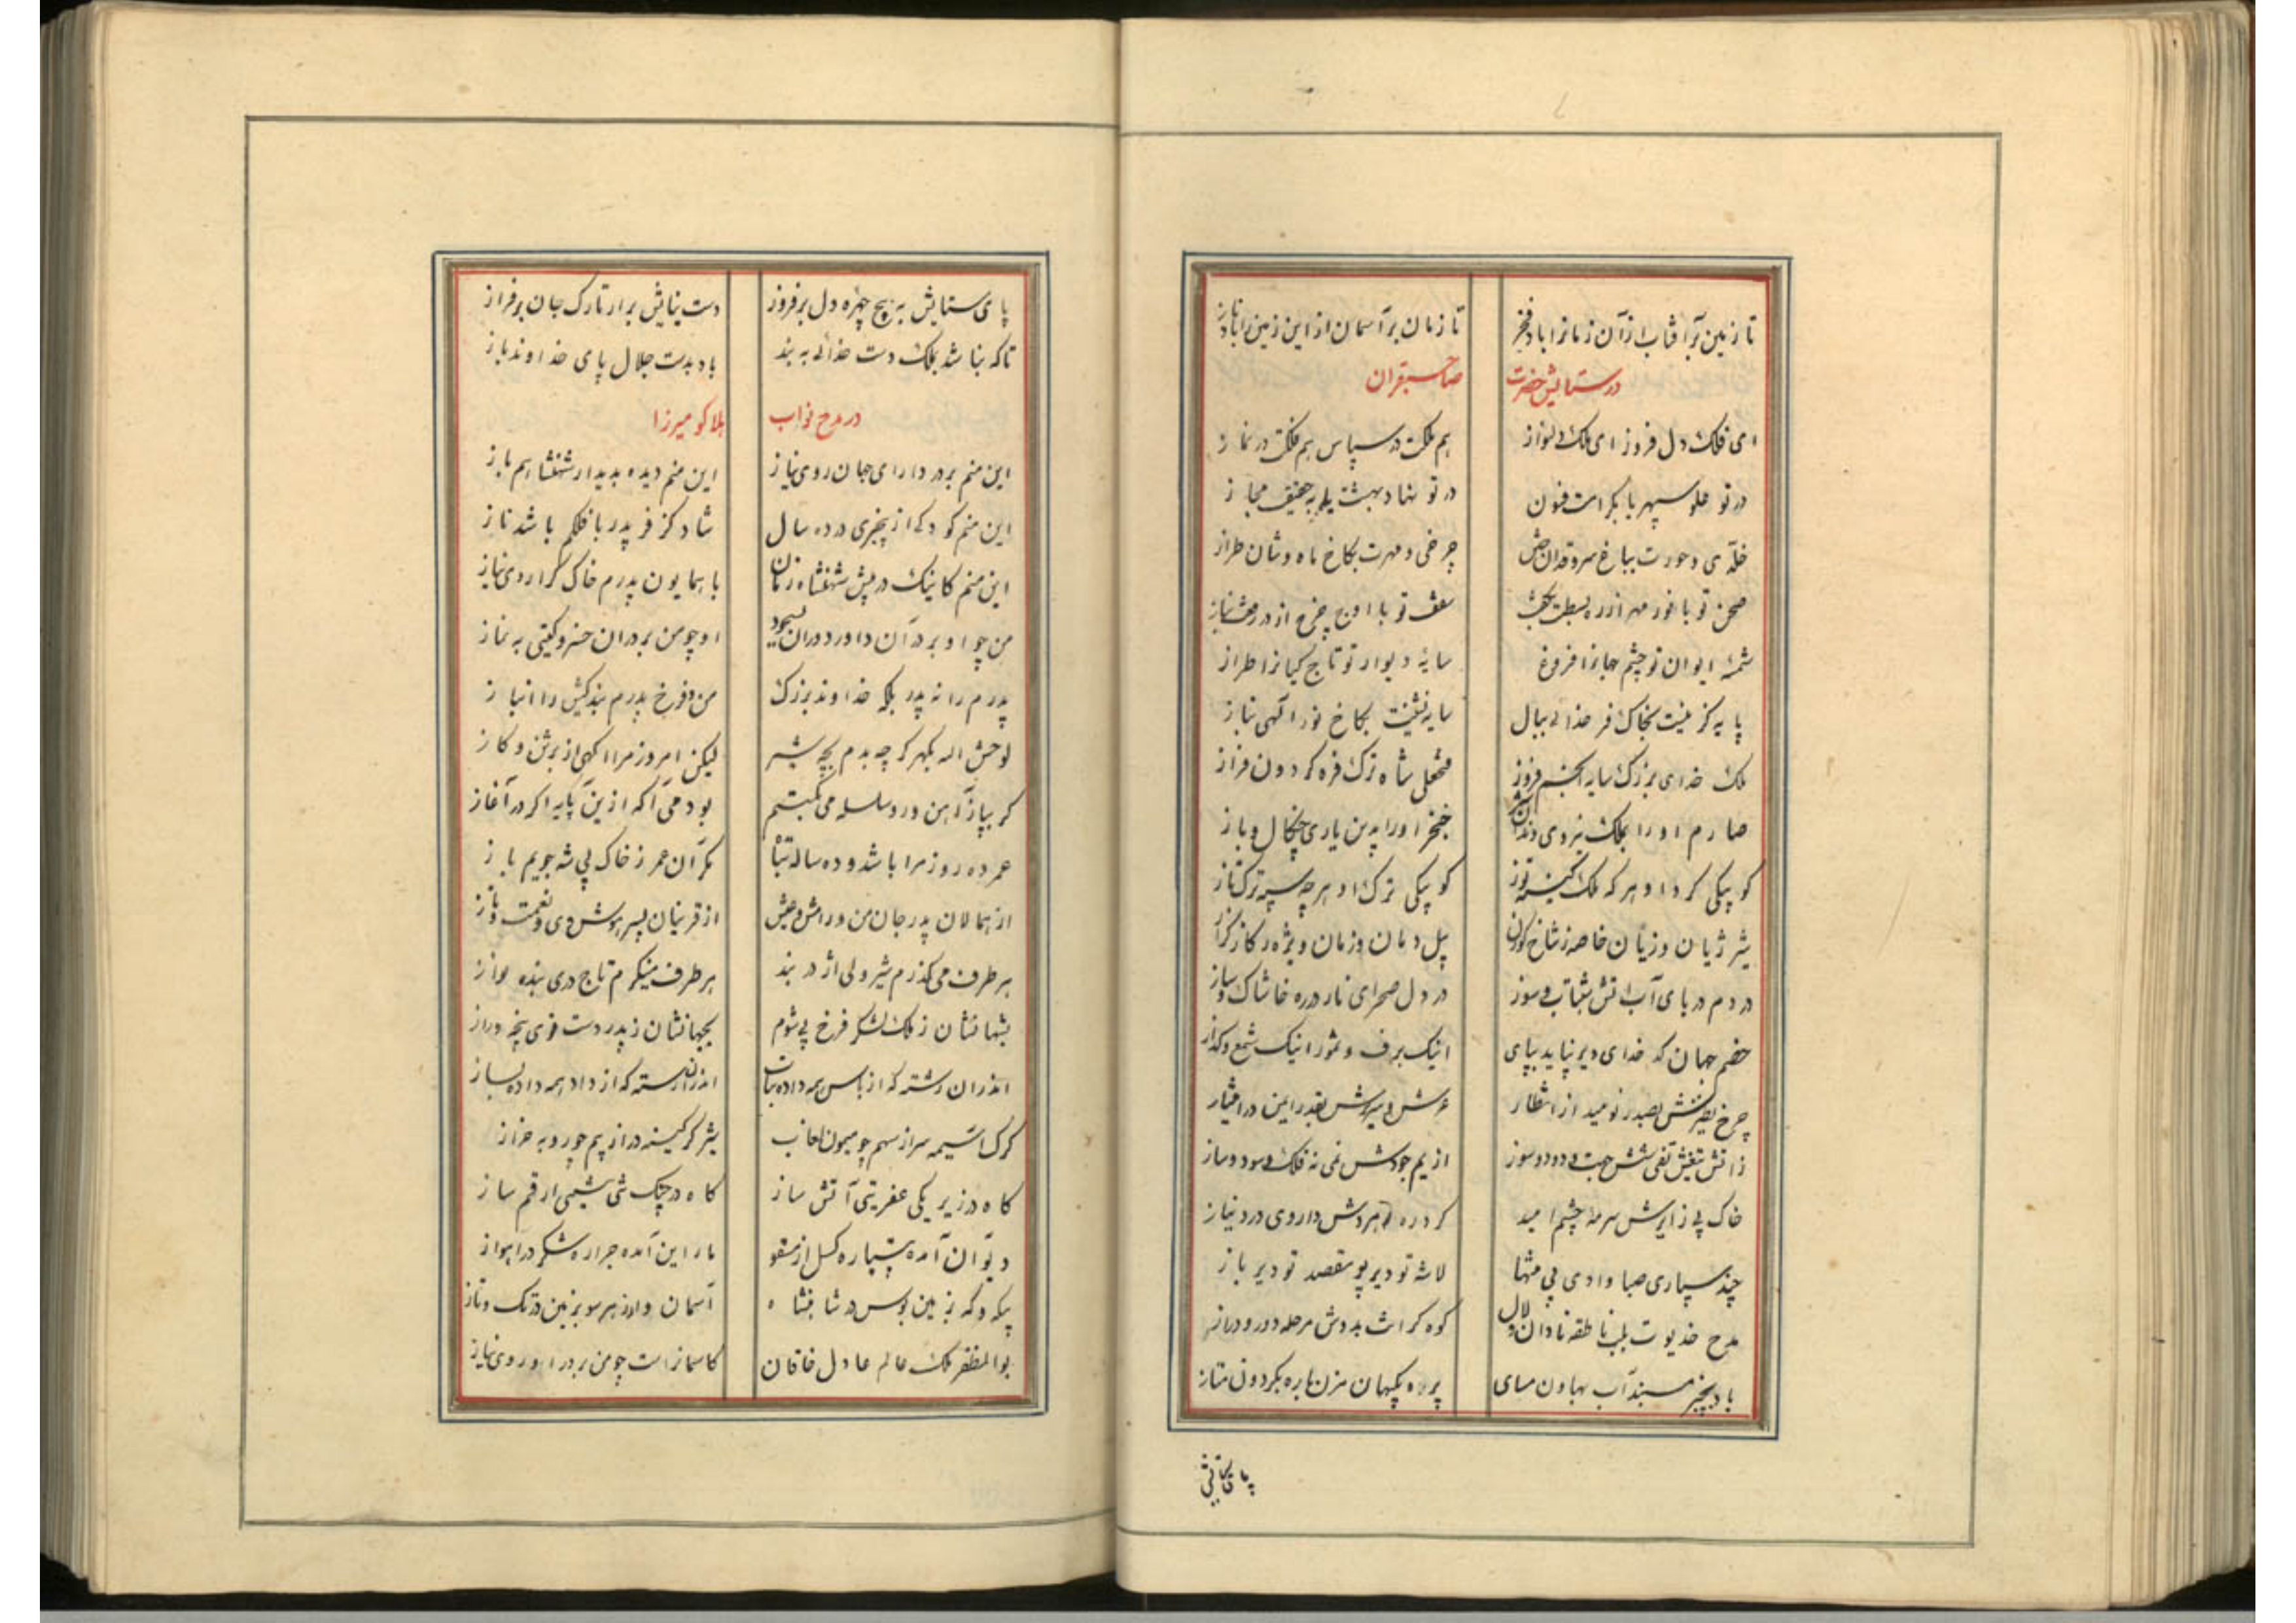 تا زمین برآفتاب از آن زمانرا باد فخر
تا زمان برآسمان از این زمین را باد ناز
در ستایش حضرت
صاحبقران
ای فلک دل فروز ای ملک دلنواز
هم ملکت در سپاس هم فلکت در نماز
در تو علو سپهر با بکرات فنون
در تو نهاد بهشت یله به حقیق مجاز
خلدی و حورت بباغ سروقدان چمن
چرخی و مهرت بکاخ ماه وشان طراز
صحن تو با نور مهر از در بسطت بحث
سقف تو با اوج چرخ از در رفعت نیاز
شمسه ایوان تو چشم جهانرا فروغ
سایه دیوار تو تاج کیانرا طراز
پایه کز نیست بخاک فر خدائی ببال
سایه نشینت بکاخ نور الهی بناز
ملک خدای بزرگ سایه انجم فروز
شاه ترک فره گردون فراز
صارم او را بملک نیروی دندان
خنجر او را بدین یاری چنگال و باز
کو یکی کرد او هر که ملک کینه توز
کو یکی ترک او هر چه سپه ترک تاز
شیر ژیان وزیان خاصه ز شاخ گوزن
پیل دمان وزمان ویژه ز کاز گراز
در دم دریای آب آتش بشتاب و سوز
در دل صحرای نار دره خاشاک و ساز
خصم جهان کدخدای دیر نپاید بپای
اینک برف و تموز اینک شمع و گداز
چرخ بصد نومید از انتظار
عرش بقدر ایمن در افتقار
زآتش تیغش تفی شش جهت و دود و سوز
از یم جودش نمی نه فلک و سود و ساز
خاک پی زایرش سرمه چشم امید
گرد ره داروی درد نیاز
چند سپاری صبا وادی بی منتها
لاشه تو دیر پو مقصد تو دیر باز
مدح خدیوت بلب ناطقه نادان و لال
کوه گرانت بدوش مرحله دور و دراز
باد بچنبر مبند آب بهاون مسای
پرده بکیهان مزن باره بگردون متاز
پای ستایش به پیچ چهره دل برفروز
دست نیایش برآر تارک جان برفراز
تا که بناشد بملک دست خدائی به بند
باد بدست جلال پای خداوند باز
در مدح نواب
هلاکو میرزا
این منم بر در دارای جهان روی نیاز
این منم دیده بدیدار شهنشاهم باز
این منم کودکی از پنجری در ده سال
شاد کز فر پدر با فلکم باشد ناز
این منم کاینک در پیش شهنشاه زمان
با همایون پدرم خاک گرا روی نیاز
من چو او بر در آن داور دوران بسجود
او چو من بر در آن خسرو گیتی به نماز
پدرم را نه پدر بلکه خداوند بزرگ
من و فرخ پدرم بندگیش را انباز
لوحش الله بگهر گرچه بدم بچه شیر
لیکن امروز مرا آگهی از برثن و گاز
گر بپا ز آهن در سلسله می بگسستم
بودمی آگه ازین پایه اگر در آغاز
عمر ده روز مرا باشد و ده ساله تباه
مگر آن عمر ز خاک پی شه جویم باز
از همالان پدر جان من و رامش و عیش
از قرینان پسر هوش وی و نعمت و ناز
هر طرف می گذرم شیر ولی اژدر بند
هر طرف مینگرم تاج دهی بنده نواز
بتنها نشان ز ملک لشکر فرخ پی شوم
بجهانشان ز پدر دست قوی پنجه دراز
اندران رشته که از باس همه داده بتاب
اندران رسته که از داد همه داده بساز
گرگ آسیمه سر از سهم چو میمون لعاب
شیر گر کینه ور از بیم چو روبه خزاز
گاه در زیر یکی عفریتی آتش ساز
گاه در چنگ شیی ارقم ساز
دیو آن آمده پتیاره گسل
مار این آمده جراره شکر در اهواز
یکه و که بزمین بوس در شاهنشاه
آسمان وار ز هر سو بزمین در تک و تاز
بوالمظفر ملک عالم عادل خاقان
کاسمانراست چو من بر در او روی نیاز
پای ستایش